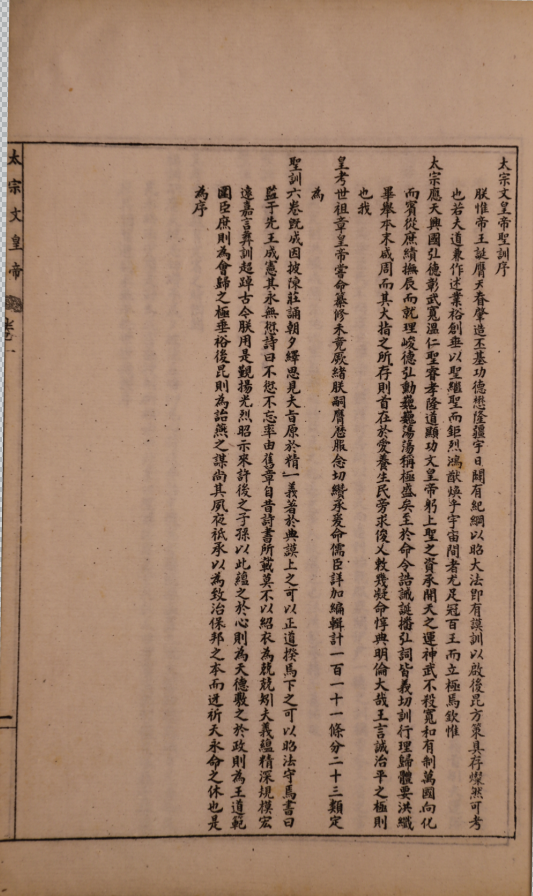 太宗文皇帝聖訓序
朕惟帝王誕膺天眷肇造丕基功德懋隆疆宇日闢有紀綱以昭大法即有謨訓以啟後昆方策具存燦然可考
也若夫道兼作述業裕創垂以聖繼聖而鉅烈鴻猷煥乎宇宙間者尤足冠百王而立極焉欽惟
太宗應天興國弘德彰武寬溫仁聖睿孝隆道顯功文皇帝躬上聖之資承開天之運神武不殺寬和有制萬國向化
而賓從庶績撫辰而就理峻德弘勳巍巍蕩蕩稱極盛矣至於命令誥誡誕播弘詞皆義切訓行理歸體要洪纖
畢舉本末咸周而其大指之所存則首在於愛養生民旁求俊乂敕幾凝命惇典明倫大哉王言誠治平之極則
也我
皇考世祖章皇帝嘗命纂修未竟厥緒朕嗣膺曆服念切纘承爰命儒臣詳加編輯計一百一十一條分二十三類定
為
聖訓六卷既成因披陳莊誦朝夕繹思見夫旨原於精一義著於典謨上之可以正道揆焉下之可以昭法守焉書曰
監于先王成憲其永無愆詩曰不愆不忘率由舊章自昔詩書所載莫不以紹衣為兢兢矧夫義蘊精深規模宏
遠嘉言彝訓超踔古今朕用是覲揚光烈昭示來許後之子孫以此蘊之於心則為天德敷之於政則為王道範
圍臣庶則為會歸之極垂裕後昆則為詒燕之謀尚其夙夜祇承以為致治保邦之本而迓祈天永命之休也是
為序
太宗文皇帝
卷一
一